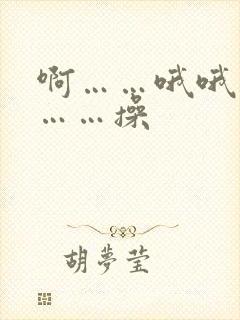 啊……哦哦
……操
胡夢莹